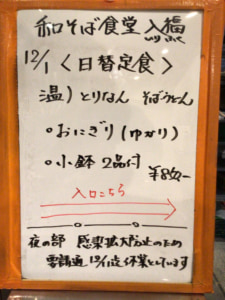 和そば食堂 入福
いり ふく
12/1 〈日替定食〉
温）とりなん そばうどん
○おにぎり（ゆかり）
○小鉢 2品付
入口こちら
夜の部 感染拡大防止のため
要請通 休業としています